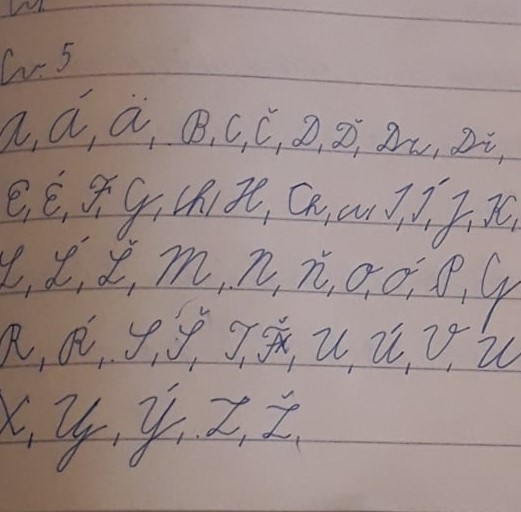 Cv. 5
A, Á, Ä, B, C, Č, D, Ď, Dz, Dž,
E, É, F, G, Ch, H, Ch, I, Í, J, K,
L, Ĺ, Ľ, M, N, Ň, O, Ó, P, Q
R, Ŕ, S, Š, T, Ť, U, Ú, V, W
X, Y, Ý, Z, Ž,